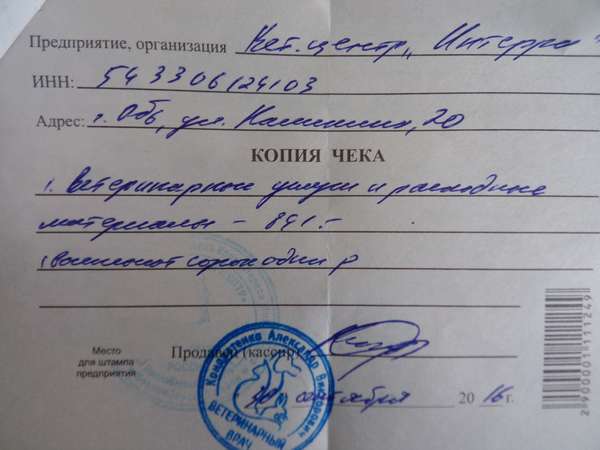 Предприятие, организация Вет. центр „Интерра"
ИНН: 543306124103
Адрес: г. Обь, ул. Калинина, 20
КОПИЯ ЧЕКА
1. Ветеринарные услуги и расходные
материалы – 841.-
(восемьсот сорок один р
Место
для штампа
предприятия
Продавец (кассир)
Кондратенко Александр Викторович
ВЕТЕРИНАРНЫЙ
ВРАЧ
сентября 2016 г.
2900001111249